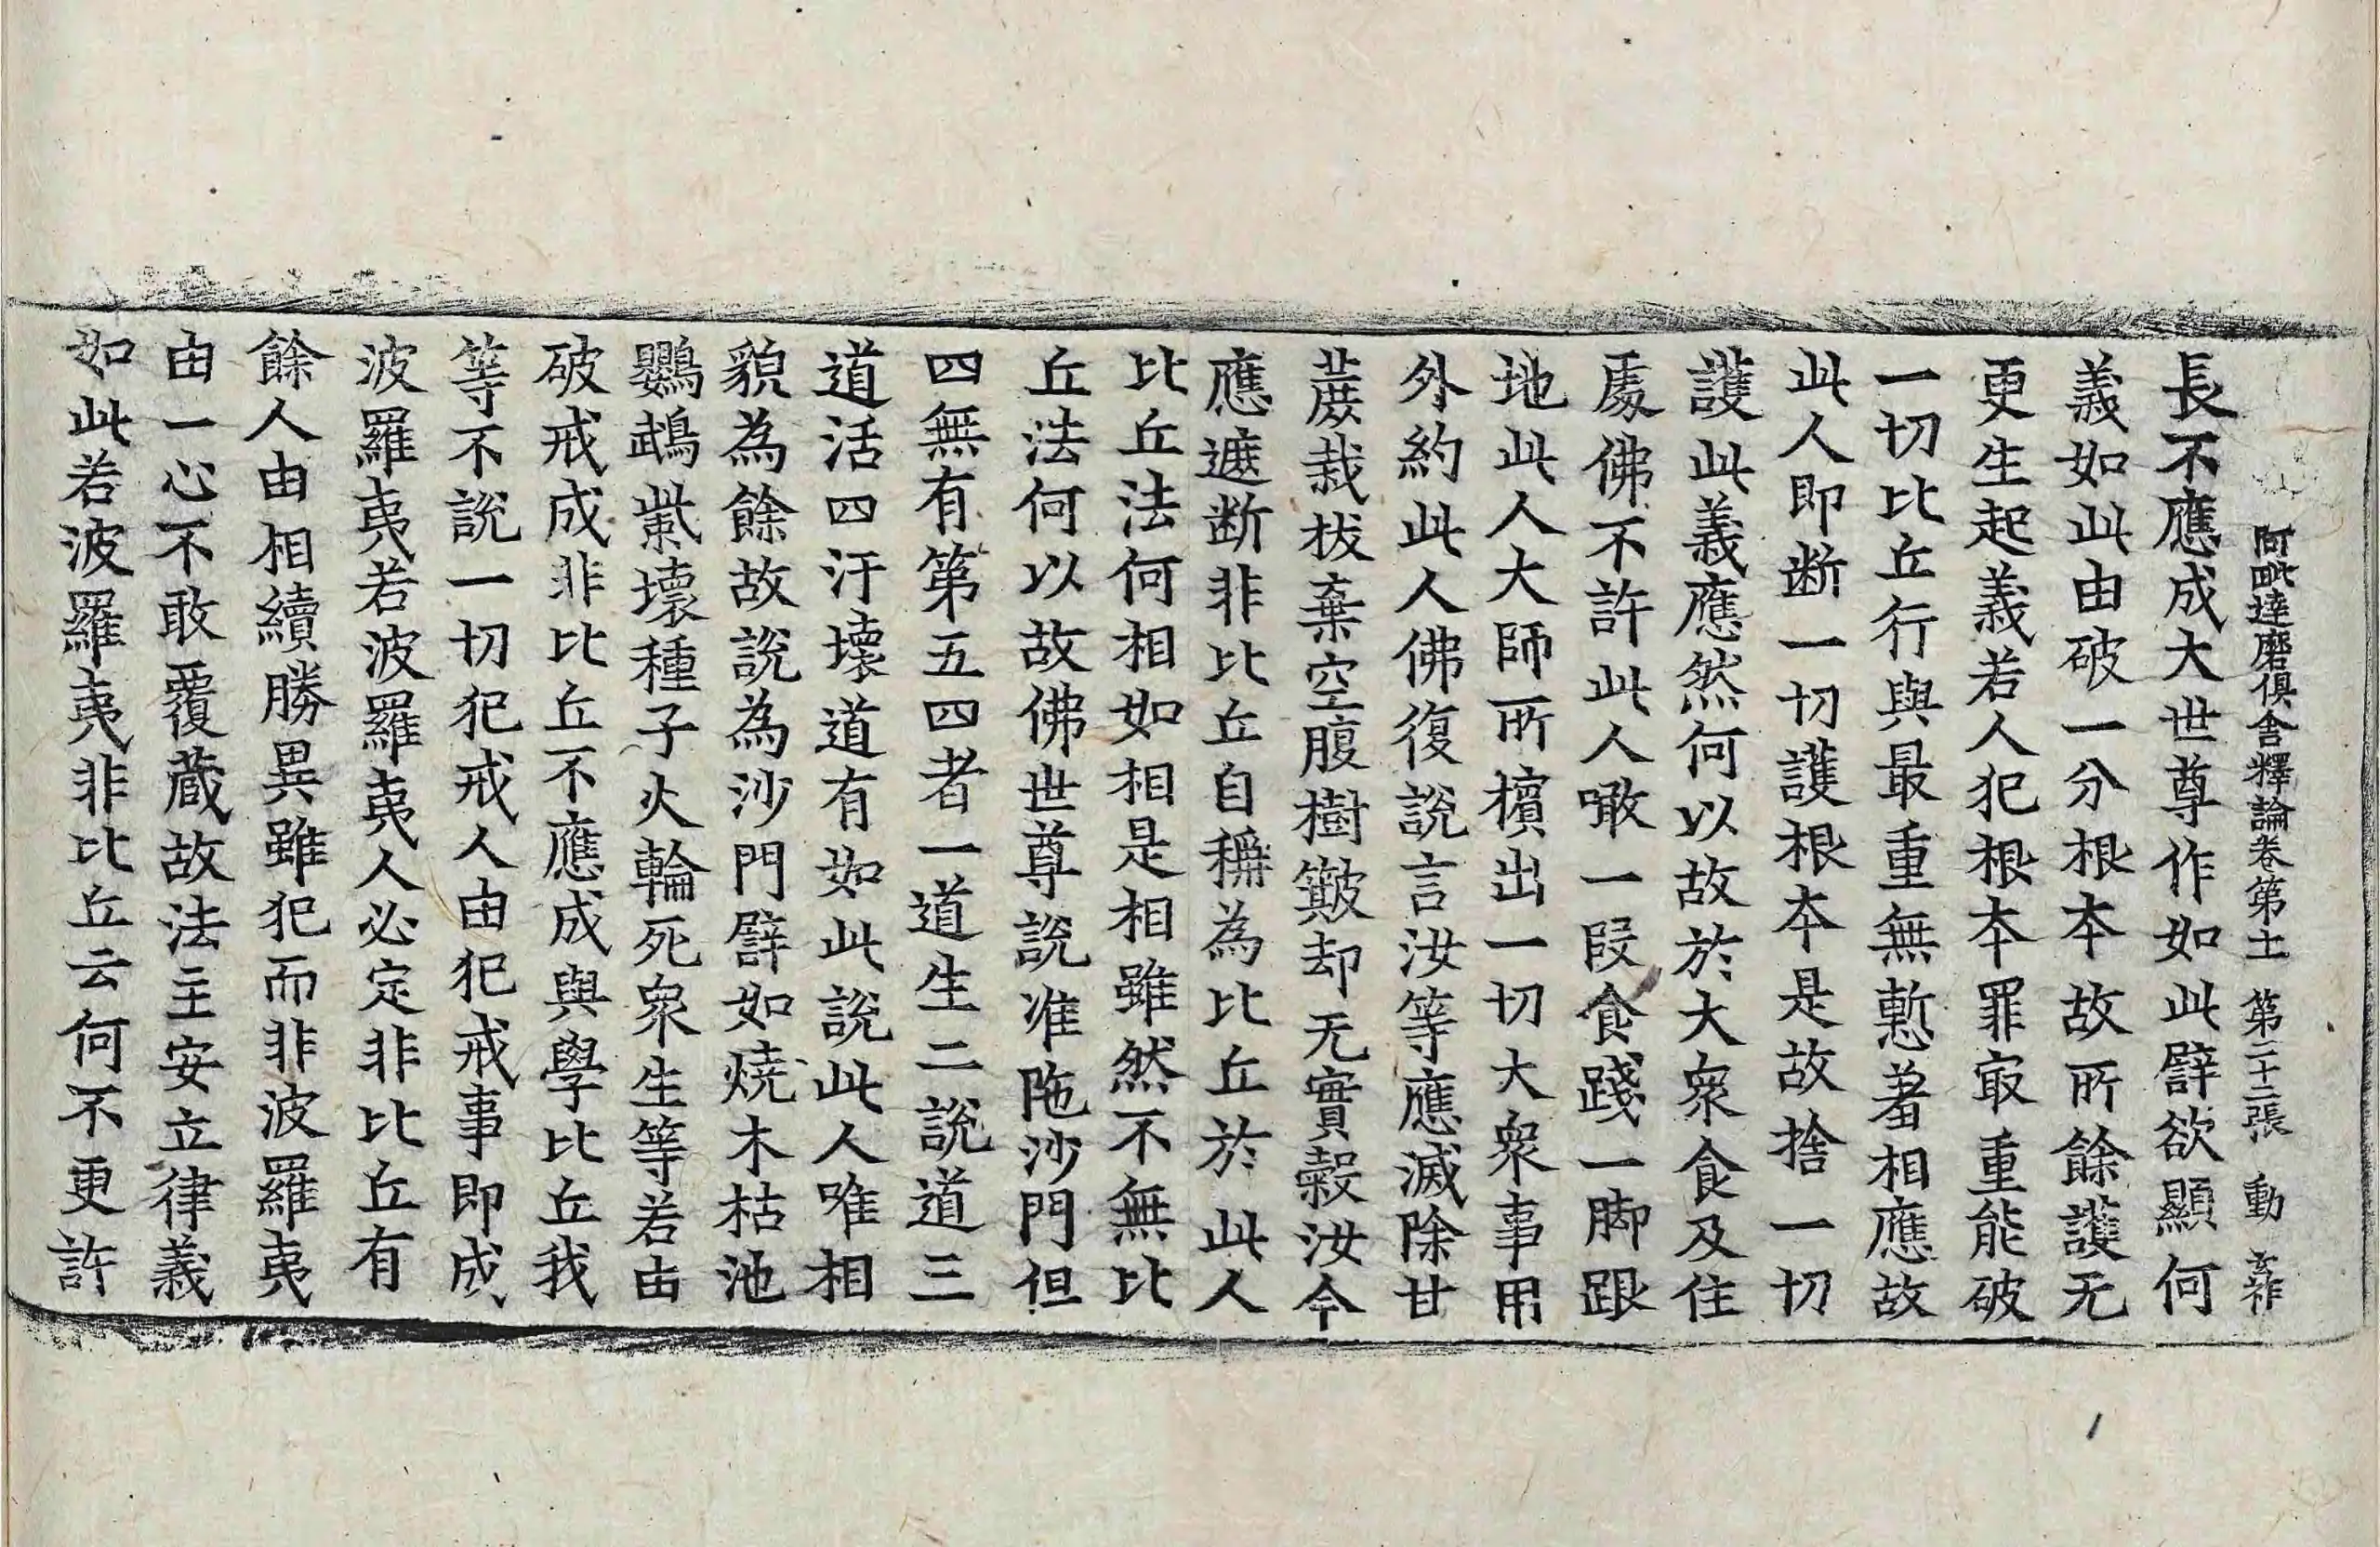 阿毗達磨俱舍釋論卷第十一 第二十三張 動 玄祚
長不應成大世尊作如此譬欲顯何
義如此由破一分根本故所餘護无
更生起義若人犯根本罪㝡重能破
一切比丘行與最重無慙著相應故
此人即断一切護根本是故捨一切
護此義應然何以故於大衆食及住
處佛不許此人噉一段食踐一脚跟
地此人大師所擯出一切大衆事用
外約此人佛復說言汝等應滅除甘
蔗栽拔棄空腹樹簸却无實穀汝今
應遮断非比丘自稱為比丘於此人
比丘法何相如相是相雖然不無比
丘法何以故佛世尊說准陁沙門但
四無有第五四者一道生二說道三
道活四汙壞道有如此說此人唯相
貌為餘故說為沙門譬如燒木枯池
鸚鵡㭰壞種子火輪死衆生等若由
破戒成非比丘不應成與學比丘我
等不說一切犯戒人由犯戒事即成
波羅夷若波羅夷人必定非比丘有
餘人由相續勝異雖犯而非波羅夷
由一心不敢覆蔵故法主安立律義
如此若波羅夷非比丘云何不更許